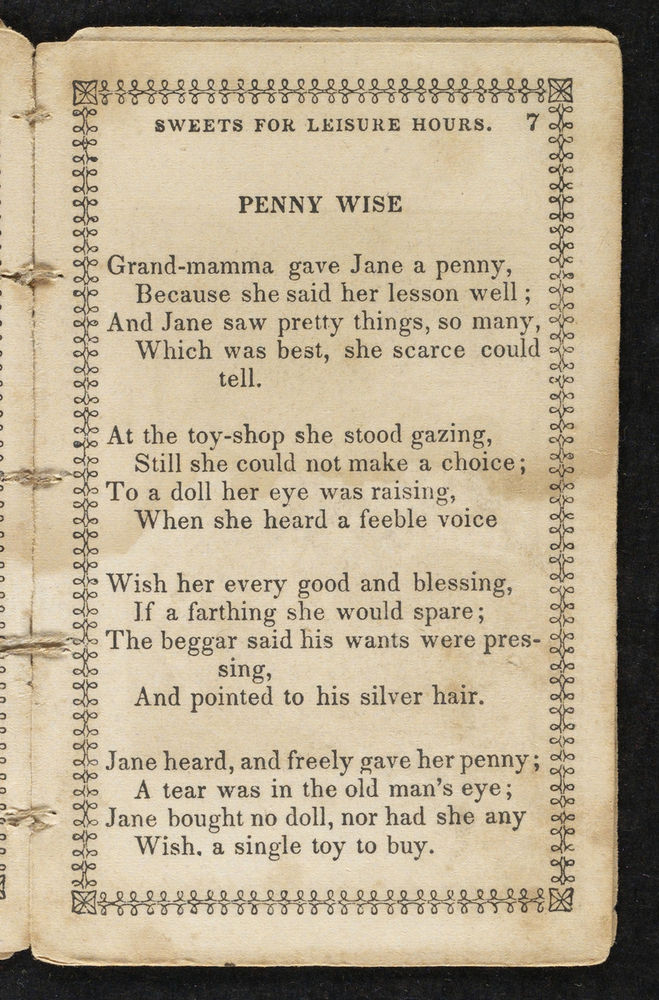 SWEETS FOR LEISURE HOURS. 7
PENNY WISE
Grand-mamma gave Jane a penny,
Because she said her lesson well ;
And Jane saw pretty things, so many,
Which was best, she scarce could
tell.
At the toy-shop she stood gazing,
Still she could not make a choice;
To a doll her eye was raising,
When she heard a feeble voice
Wish her every good and blessing,
If a farthing she would spare;
The beggar said his wants were pres-
sing,
And pointed to his silver hair.
Jane heard, and freely gave her penny;
A tear was in the old man's eye;
Jane bought no doll, nor had she any
Wish. a single toy to buy.